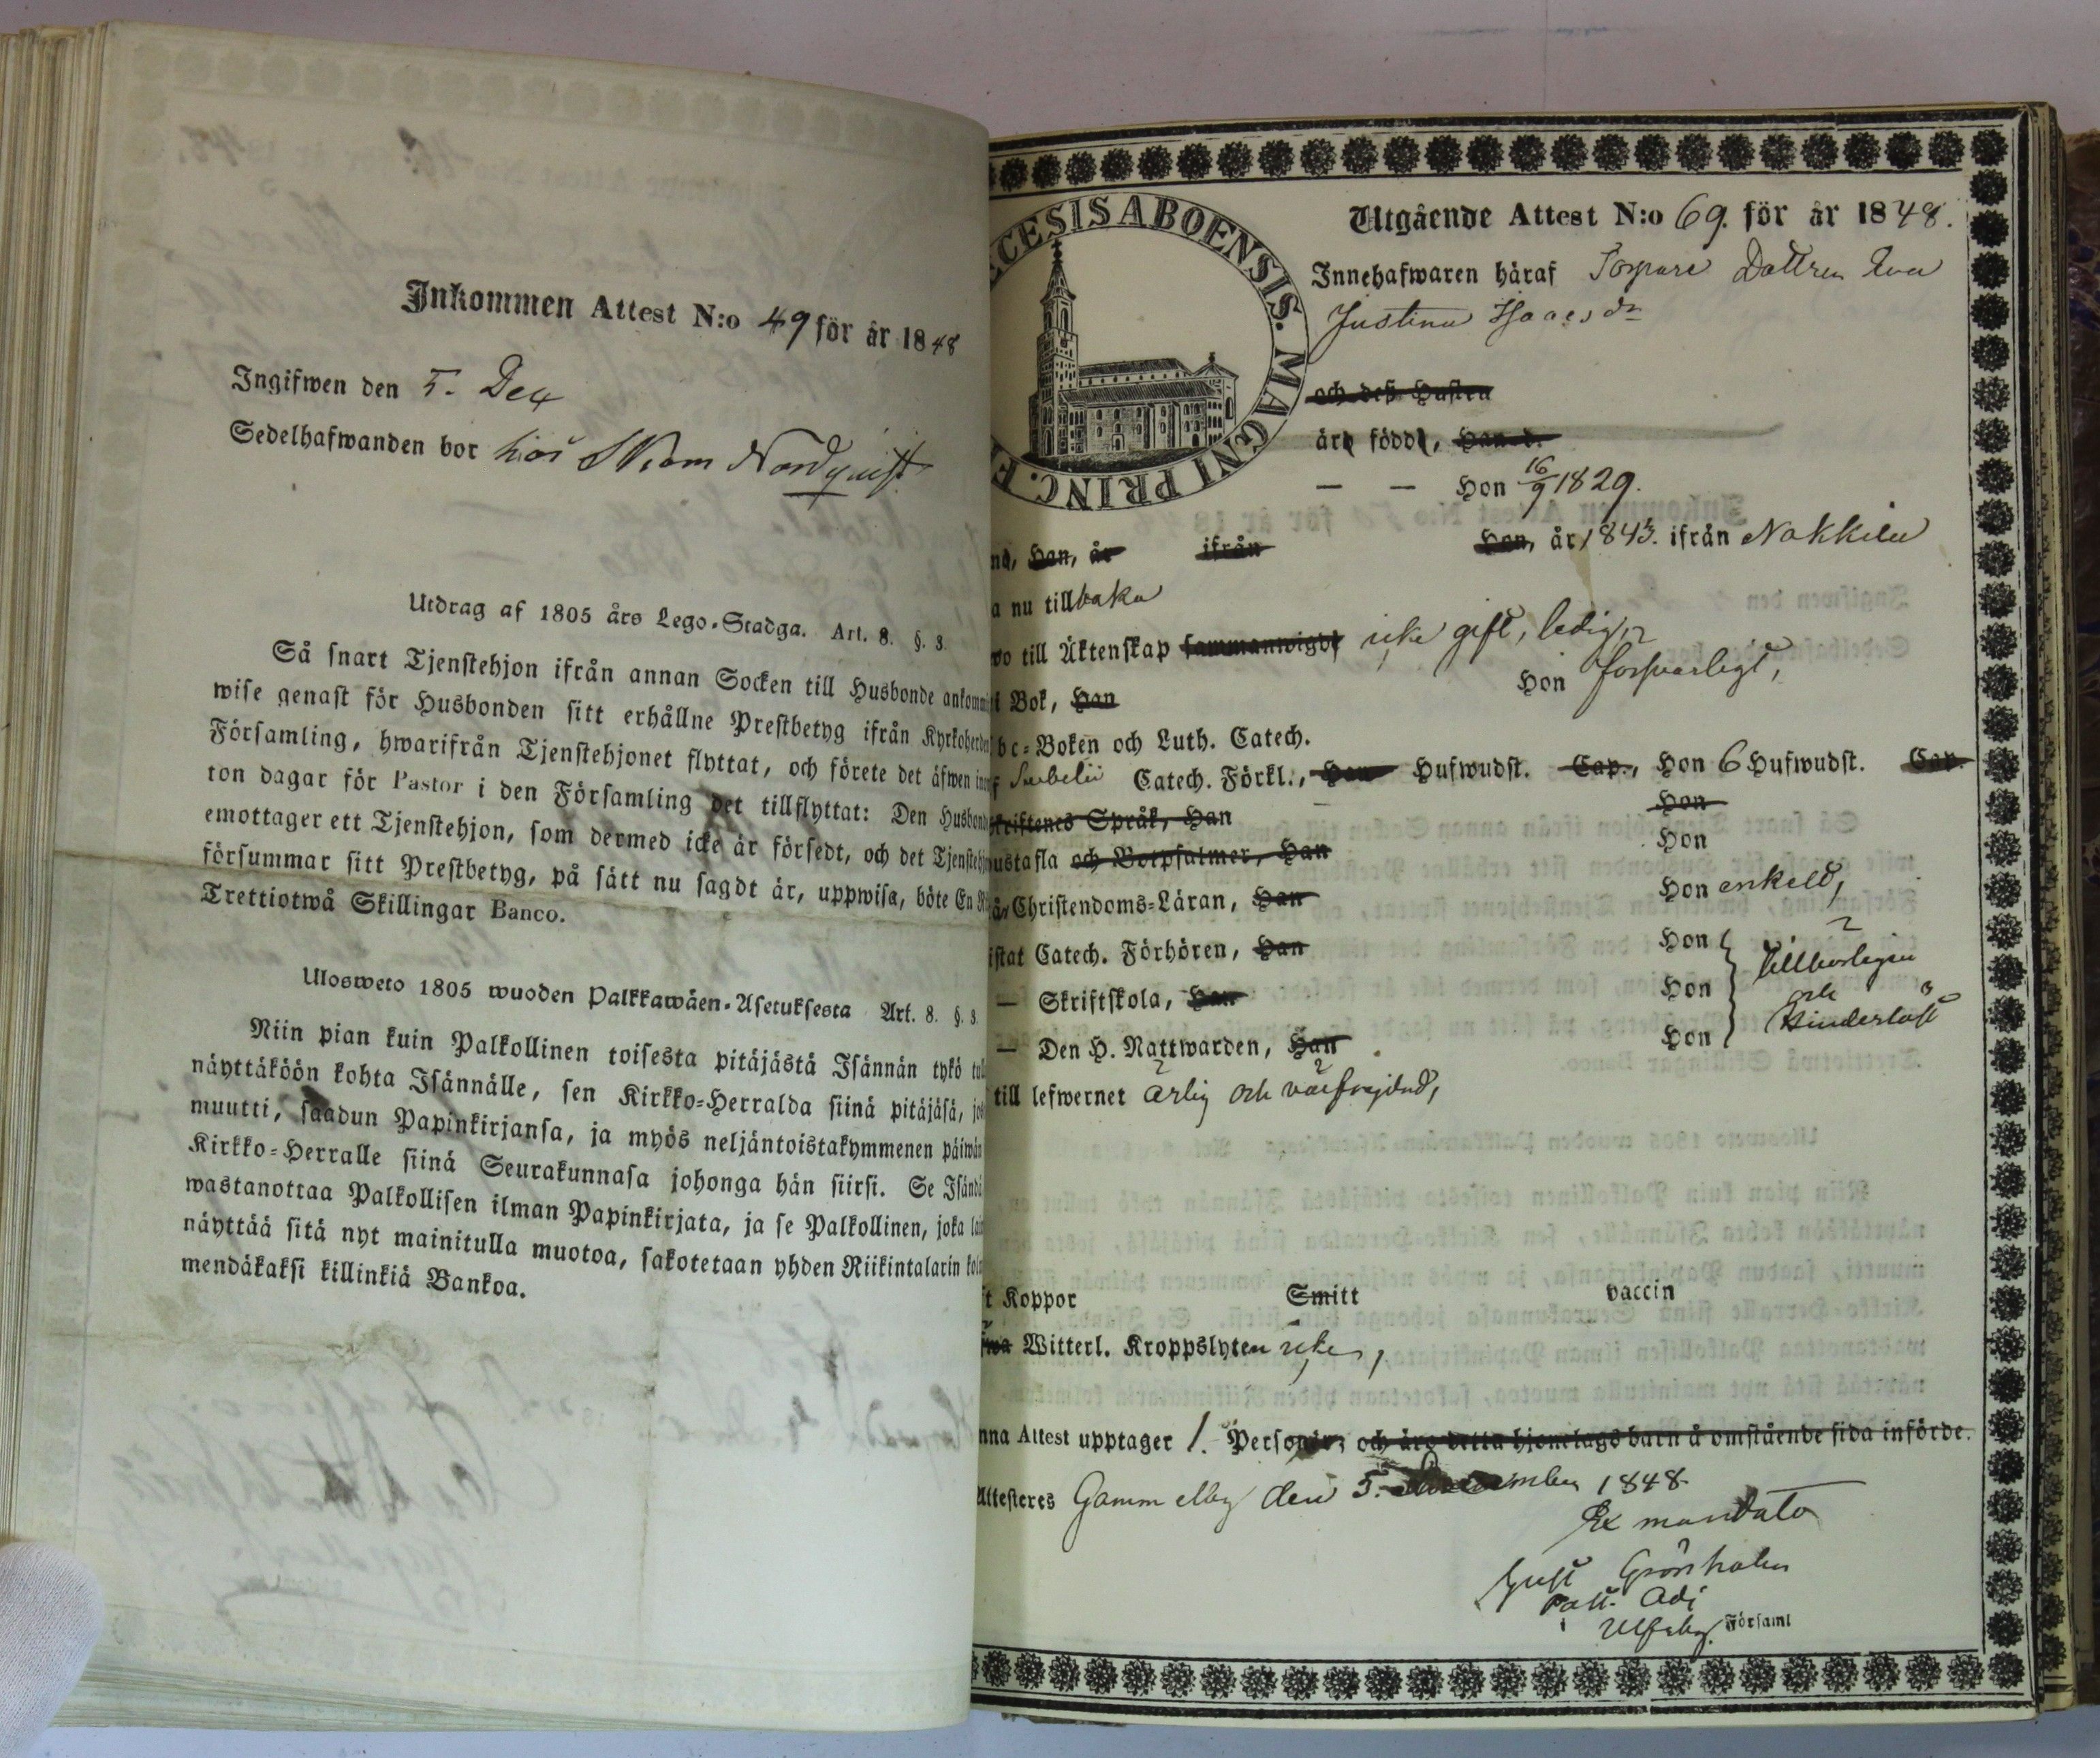 Inkommen Attest N:o 49 för år 1848
Ingifwen den 5. Dec
Sedelhafwanden bor hos Nordquist
Utdrag af 1805 års Lego-Stadga. Art. 8. §. 8.
Så snart Tjenstehjon ifrån annan Socken till Husbonde ankomm
wise genast för Husbonden sitt erhållne Prestbetyg ifrån Kyrkoherden
Församling, hwarifrån Tjenstehjonet flyttat, och förete det äfwen in
ton dagar för Pastor i den Församling det tillflyttat: Den Husbond
emottager ett Tjenstehjon, som dermed icke är försedt, och det Tjenstehj
försummar sitt Prestbetyg, på sätt nu sagdt är, uppwisa, böte En R
Trettiotwå Skillingar Banco.
Ulosweto 1805 wuoden Palkkawäen-Asetuksesta Art. 8. §. 8.
Niin pian kuin Palkollinen toisesta pitäjästä Isännän tykö tul
näyttäköön kohta Isännälle, sen Kirkko-Herralda siinä pitäjäsä, jos
muutti, saadun Papinkirjansa, ja myös neljäntoistakymmenen päiwän
Kirkko-Herralle siinä Seurakunnasa johonga hän siirsi. Se Isändä
wastanottaa Palkollisen ilman Papinkirjata, ja se Palkollinen, joka lai
näyttää sitä nyt mainitulla muotoa, sakotetaan yhden Riikintalarin kol
mendäkaksi killinkiä Bankoa.
ECESIS ABOENSIS. MAGNI PRINC. F
Utgående Attest N:o 69. för år 1848.
Innehafwaren häraf Torpare Dottren Eva
Justina Isaacsdr
och dess Hustru
äro födde, Han d.
— — Hon 16/9 1829.
nd, Han, år ifrån Hon, år 1843. ifrån Nakkila
a nu tillbaka
wo till Äktenskap sammanwigde icke gift, ledig,
i Bok, Han Hon försvarligt,
bc-Boken och Luth. Catech.
f Svebelii Catech. Förkl., Han Hufwudst. Cap., Hon 6 Hufwudst. Cap.
kriftenes Språk, Han Hon
ustafla och Botpsalmer, Han Hon
å Christendoms-Läran, Han Hon enkelt,
istat Catech. Förhören, Han Hon
— Skriftskola, Han Hon tillbörligen
och
— Den H. Nattwarden, Han Hon hinderlöst
till lefwernet ärlig och välfrejdad,
t Koppor Smitt vaccin
fwa Witterl. Kroppslyten icke,
nna Attest upptager 1. Personer, och äro detta hjonelags barn å omstående sida införde.
Attesteres Gammelby den 5. December 1848.
Ex mandato
Gust Grönholm
Past. Adj
Ulfsby. Församl